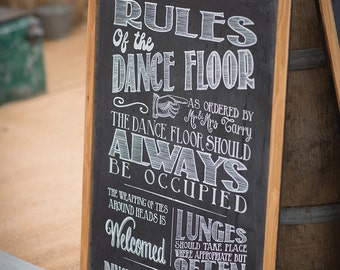 RULES
Of the
DANCE FLOOR
AS ORDERED BY
Mr & Mrs Tarry
THE DANCE FLOOR SHOULD
ALWAYS
BE OCCUPIED
THE WRAPPING OF TIES
AROUND HEADS IS
Welcomed
LUNGES
SHOULD TAKE PLACE
WHERE APPROPRIATE BUT
OFTEN